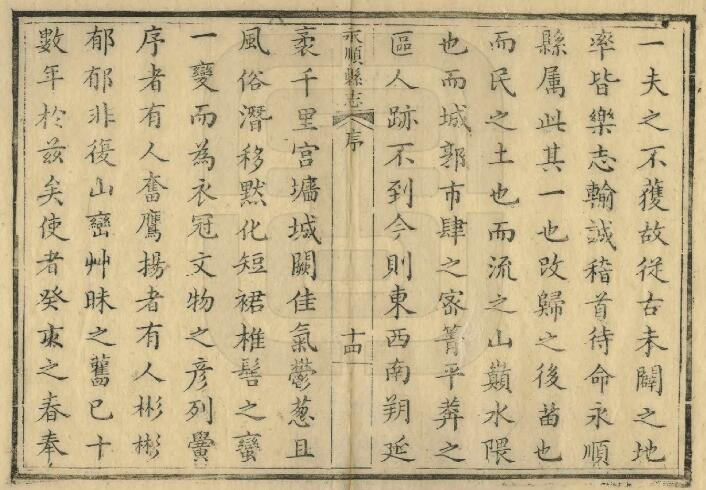 一夫之不獲故從古未闢之地
率皆樂志輸誠稽首待命永順
縣属此其一也改歸之後苗也
而民之土也而流之山巔水隈
也而城郭市肆之密菁平莽之
區人跡不到今則東西南朔延
永順縣志 序 十四
袤千里宫墻城闕佳氣鬱葱且
風俗潛移黙化短裙椎髻之蠻
一變而為衣冠文物之彦列黌
序者有人奮鷹揚者有人彬彬
郁郁非復山巒艸昧之舊已十
數年於兹矣使者癸亥之春奉